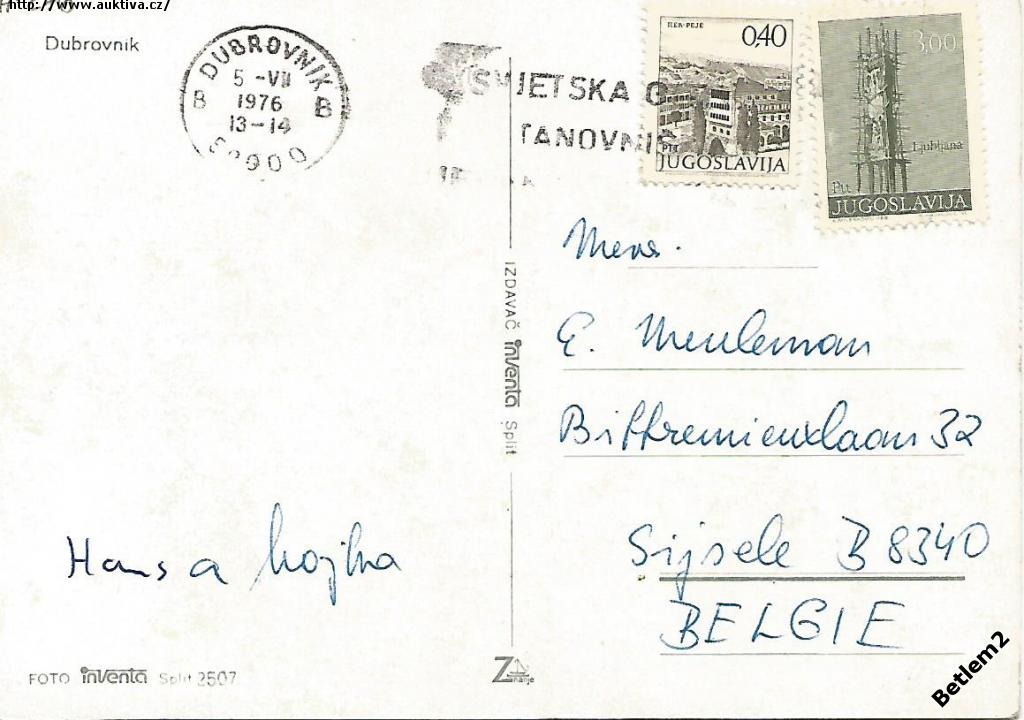 http://www.auktiva.cz/
Dubrovnik
DUBROVNIK
5 -VII
1976
13-14
B B
SVJETSKA
STANOVNIŠ
PEĆ-PEJË
0,40
PTT
JUGOSLAVIJA
3,00
Ljubljana
Ptt
JUGOSLAVIJA
Mevr.
E. Meuleman
Bitterenieuxlaan 32
Sijsele B 8340
BELGIE
Hans a
IZDAVAČ inventa Split
FOTO inventa Split 2507
Znanje
Betlem2